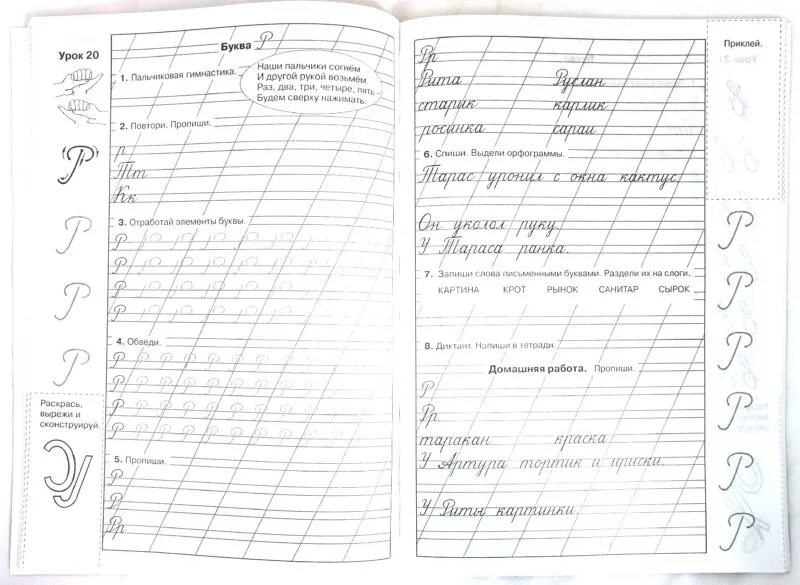 Урок 20
Буква Р
1. Пальчиковая гимнастика.
Наши пальчики согнём
И другой рукой возьмём.
Раз, два, три, четыре, пять -
Будем сверху нажимать.
2. Повтори. Пропиши.
р
Тт
Кк
3. Отработай элементы буквы.
Р
Р
Р
Р
4. Обведи.
Р Р Р Р Р Р Р Р Р Р Р
Р Р Р Р Р Р Р Р Р Р Р
Р Р Р Р Р Р Р Р Р Р Р
Р Р Р Р Р Р Р Р Р Р Р
5. Пропиши.
Р
Р
Рр
Раскрась,
вырежи и
сконструируй.
Р
Р
Р
Р
Рр
Рита Руслан
старик карлик
росинка сараи
6. Спиши. Выдели орфограммы.
Тарас уронил с окна кактус.
Он уколол руку.
У Тараса ранка.
7. Запиши слова письменными буквами. Раздели их на слоги.
КАРТИНА КРОТ РЫНОК САНИТАР СЫРОК
8. Диктант. Напиши в тетради.
Домашняя работа. Пропиши.
Р
Рр
таракан краска
У Артура тортик и ириски.
У Риты картинки.
Приклей.
Р
Р
Р
Р
Р
Р